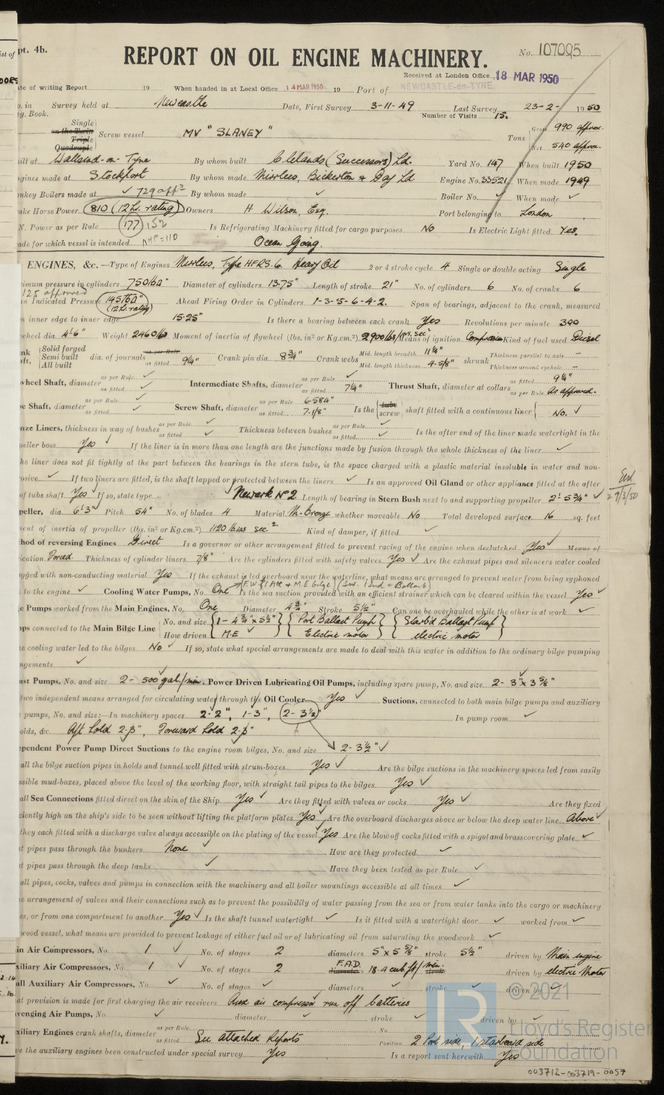 pt. 4b.
REPORT ON OIL ENGINE MACHINERY.
No. 107095
Received at London Office 18 MAR 1950
te of writing Report 19 When handed in at Local Office 14 MAR 1950 19 Port of NEWCASTLE-ON-TYNE
o. in Survey held at Newcastle Date, First Survey 3-11-49 Last Survey 23-2- 1950
g. Book. Number of Visits 15.
Single
Triple
Quadruple
Screw vessel MV "SLANEY" Tons Gross 990 approx.
Net 540 approx.
uilt at Wallsend-on-Tyne By whom built Clelands (Successors) Ld. Yard No. 147 When built 1950
ngines made at Stockport By whom made Mirrlees, Bickerton & Day Ld Engine No. 33521 When made 1949
nkey Boilers made at By whom made Boiler No. When made
ake Horse Power 810 (12 hr. rating) Owners H Wilson, Esq. Port belonging to London
N. Power as per Rule 177 152 Is Refrigerating Machinery fitted for cargo purposes. No Is Electric Light fitted. Yes.
ade for which vessel is intended Ocean Going.
ENGINES, &c.—Type of Engines Mirrlees, Type HFRS.6 Heavy Oil 2 or 4 stroke cycle 4 Single or double acting Single
imum pressure in cylinders 750 lb/□" Diameter of cylinders 13.75" Length of stroke 21" No. of cylinders 6 No. of cranks 6
n Indicated Pressure 145 lb/□" (12 hr. rating) Ahead Firing Order in Cylinders 1-3-5-6-4-2. Span of bearings, adjacent to the crank, measured
m inner edge to inner edge 15.25" Is there a bearing between each crank Yes Revolutions per minute 300
wheel dia. 4'6" Weight 2460 lbs Moment of inertia of flywheel (lbs. in² or Kg.cm²) Means of ignition Compression Kind of fuel used Diesel
Solid forged
Semi built
All built
dia. of journals as fitted 9¼" Crank pin dia. 8¾" Crank webs Mid. length breadth 11¼"
Mid. length thickness shrunk Thickness parallel to axis
Thickness around eyehole
wheel Shaft, diameter as per Rule
as fitted
Intermediate Shafts, diameter as per Rule
as fitted 7¼"
Thrust Shaft, diameter at collars as fitted 9¼"
as per Rule As approved.
e Shaft, diameter as per Rule
as fitted
Screw Shaft, diameter as per Rule 6.584"
as fitted 7-1/8"
Is the screw shaft fitted with a continuous liner No.
nze Liners, thickness in way of bushes as per Rule
as fitted
Thickness between bushes as per Rule
as fitted
Is the after end of the liner made watertight in the
peller boss Yes If the liner is in more than one length are the junctions made by fusion through the whole thickness of the liner.
he liner does not fit tightly at the part between the bearings in the stern tubes, is the space charged with a plastic material insoluble in water and non-
rosive If two liners are fitted, is the shaft lapped or protected between the liners Is an approved Oil Gland or other appliance fitted at the after
of tube shaft Yes If so, state type Newark No 2 Length of bearing in Stern Bush next to and supporting propeller 2'-5¾"
peller, dia. 6'3" Pitch 54" No. of blades 4 Material Mn-Bronze whether moveable No Total developed surface 16 sq. feet
ent of inertia of propeller (lbs. in² or Kg.cm²) 1120 lbs sec² Kind of damper, if fitted
thod of reversing Engines Direct Is a governor or other arrangement fitted to prevent racing of the engine when declutched Yes Means of
ication Forced Thickness of cylinder liners 7/8" Are the cylinders fitted with safety valves Yes Are the exhaust pipes and silencers water cooled
gged with non-conducting material Yes If the exhaust is led overboard near the waterline, what means are arranged to prevent water from being syphoned
to the engine Cooling Water Pumps, No. One Is the sea suction provided with an efficient strainer which can be cleared within the vessel Yes
ge Pumps worked from the Main Engines, No. One Diameter 4¾" Stroke 5½" Can one be overhauled while the other is at work
ps connected to the Main Bilge Line
No. and size 1-4¾" x 5½" Port Ballast Pump Starb'd Ballast Pump
How driven M.E Electric motor electric motor
e cooling water led to the bilges No If so, state what special arrangements are made to deal with this water in addition to the ordinary bilge pumping
ngements
st Pumps, No. and size 2- 500 gal/min. Power Driven Lubricating Oil Pumps, including spare pump, No. and size 2- 3" x 3⅝"
two independent means arranged for circulating water through the Oil Cooler Yes Suctions, connected to both main bilge pumps and auxiliary
pumps, No. and size:- In machinery spaces 2-2", 1-3", 2-3½" In pump room
olds, &c. Aft hold 2-3", Forward hold 2-3"
ependent Power Pump Direct Suctions to the engine room bilges, No. and size 2-3½"
all the bilge suction pipes in holds and tunnel well fitted with strum-boxes Yes Are the bilge suctions in the machinery spaces led from easily
ssible mud-boxes, placed above the level of the working floor, with straight tail pipes to the bilges Yes
all Sea Connections fitted direct on the skin of the Ship Yes Are they fitted with valves or cocks Yes Are they fixed
ciently high on the ship's side to be seen without lifting the platform plates Yes Are the overboard discharges above or below the deep water line Above
they each fitted with a discharge valve always accessible on the plating of the vessel Yes Are the blow off cocks fitted with a spigot and brass covering plate
t pipes pass through the bunkers None How are they protected
t pipes pass through the deep tanks Have they been tested as per Rule
all pipes, cocks, valves and pumps in connection with the machinery and all boiler mountings accessible at all times
e arrangement of valves and their connections such as to prevent the possibility of water passing from the sea or from water tanks into the cargo or machinery
es, or from one compartment to another Yes Is the shaft tunnel watertight Is it fitted with a watertight door worked from
wood vessel, what means are provided to prevent leakage of either fuel oil or of lubricating oil from saturating the woodwork
in Air Compressors, No. 1 No. of stages 2 diameters 5" x 5⅝" stroke 5½" driven by Main engine
xiliary Air Compressors, No. 1 No. of stages 2 F.A.D. 18.4 cub.ft/min driven by electric Motor
ll Auxiliary Air Compressors, No. No. of stages diameters stroke driven by
at provision is made for first charging the air receivers Aux air compressor run off batteries
venging Air Pumps, No. diameter stroke driven by
xiliary Engines crank shafts, diameter as per Rule
as fitted See attached Reports Position 2 Port side, 1 starboard side
ve the auxiliary engines been constructed under special survey Yes Is a report sent herewith Yes
LR
© 2021
Lloyd's Register
Foundation
003712-003719-0057